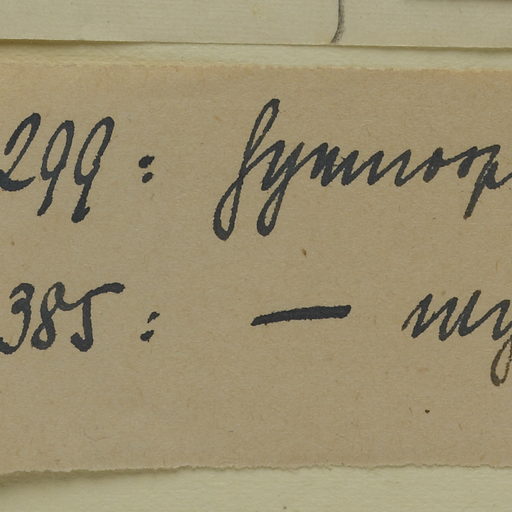 299: Gymnosp
385: — my